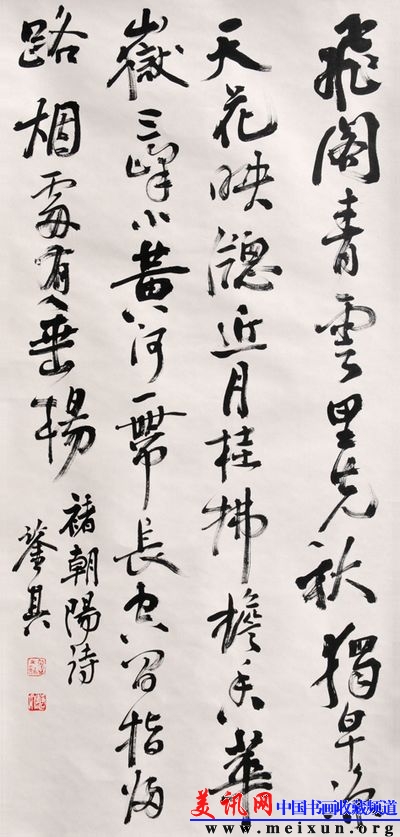 飛閣青雲里先秋獨早涼
天花映牕近月桂拂檐香華
嶽三峰小黃河一帶長空間指歸
路烟處有垂楊
褚朝陽詩
其
美讯网 中国书画收藏频道
www.meixun.org